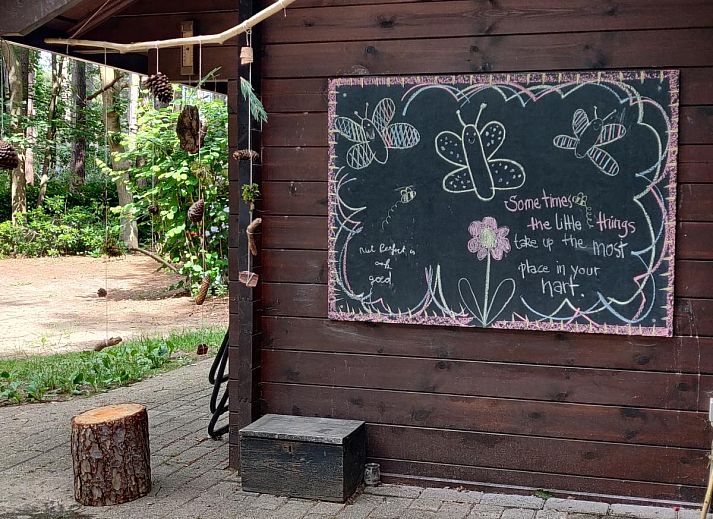 Sometimes
the little things
take up the most
place in your
hart.
niet Perfect is
ook
goed